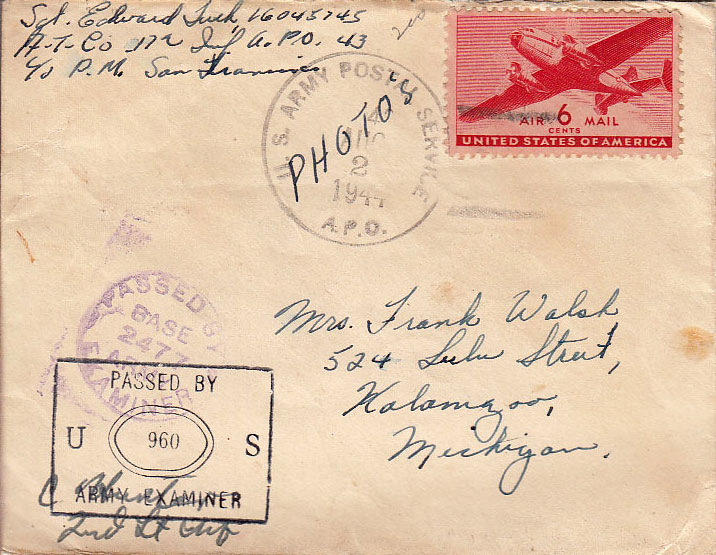 Sgt. Edward Tuck 16045745
A-T-Co 172 Inf A.P.O. 43
c/o P.M. San Francisco
200
U.S. ARMY POSTAL SERVICE
AUG
2
1944
A.P.O.
PHOTO'S
AIR 6 MAIL
CENTS
UNITED STATES OF AMERICA
PASSED BY
BASE
2477
ARMY
EXAMINER
Mrs. Frank Walsh
524 Lulu Street,
Kalamazoo,
Michigan.
PASSED BY
U 960 S
ARMY EXAMINER
2nd Lt Inf